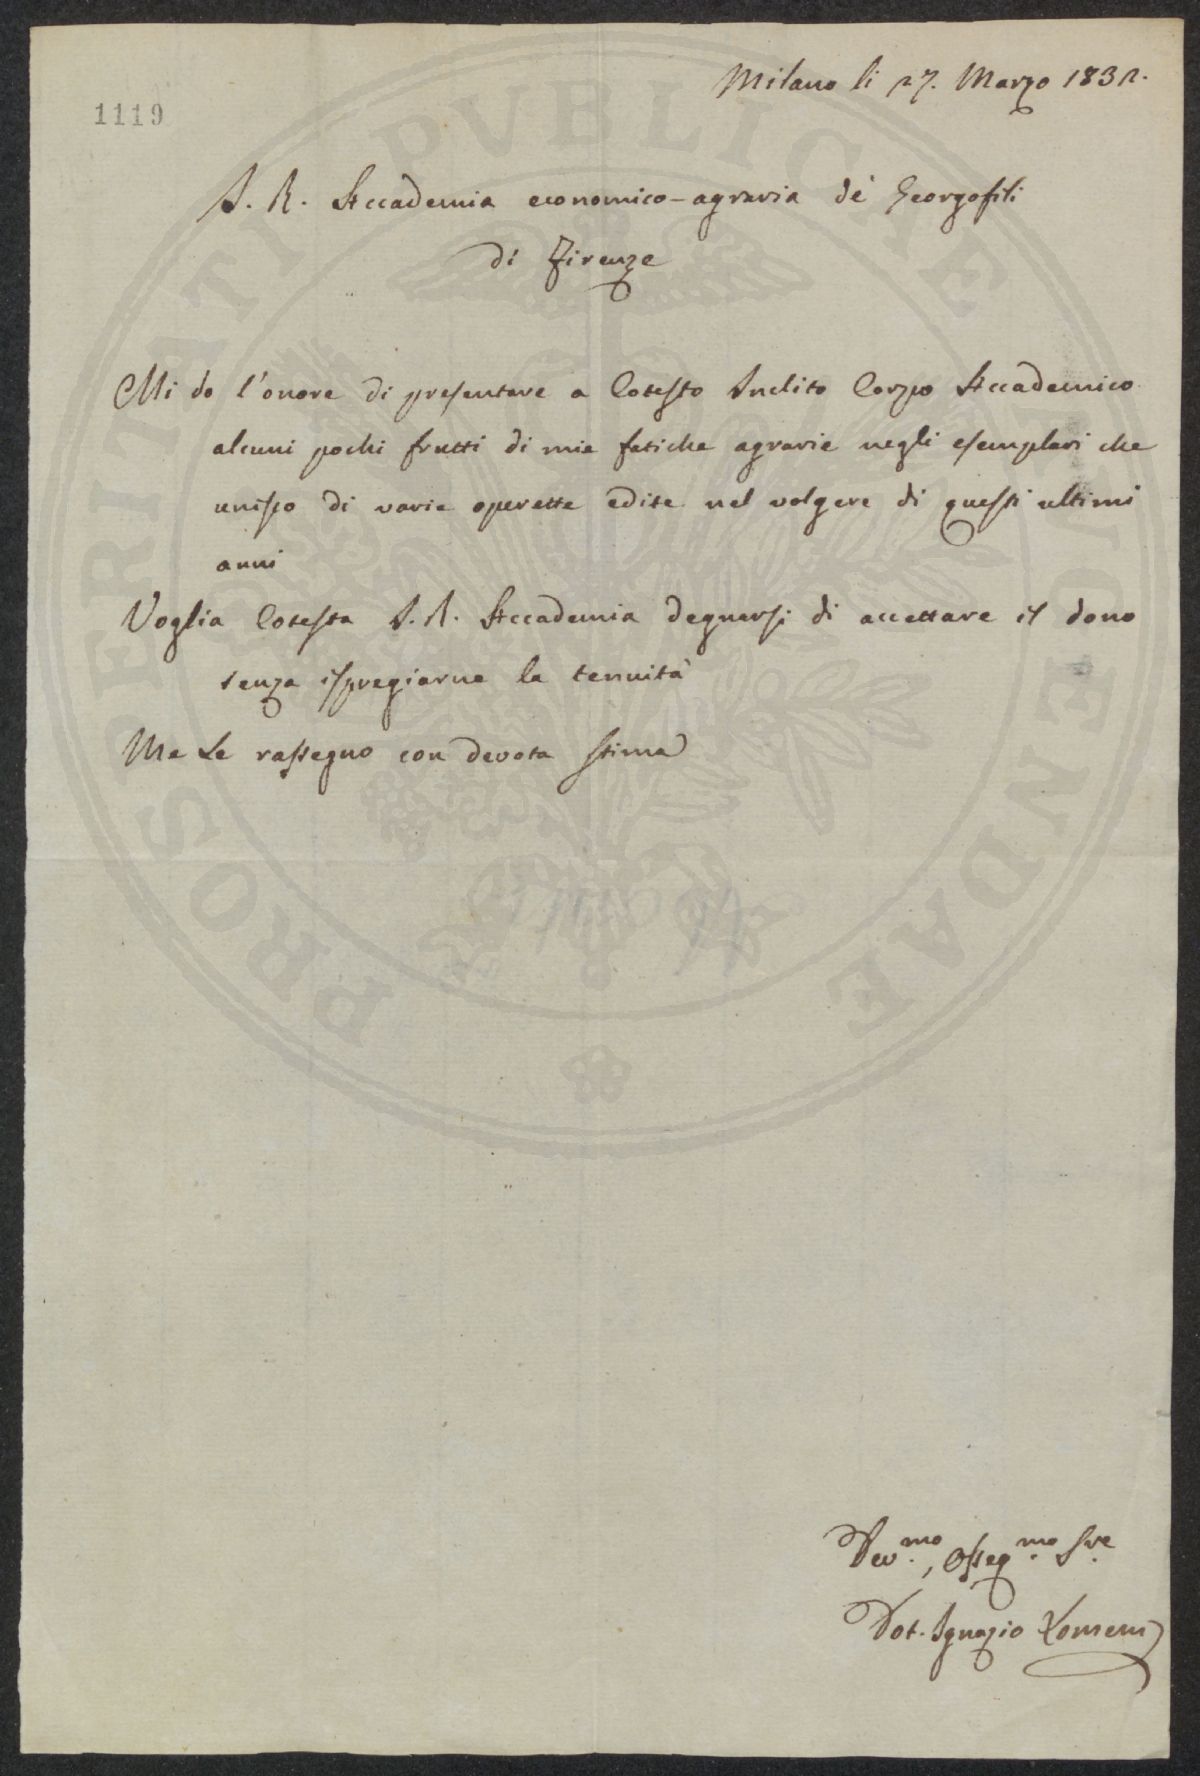 1119
Milano li 27. Marzo 1832.
I. R. Accademia economico-agraria de' Georgofili
di Firenze
Mi do l'onore di presentare a Cotesto Inclito Corpo Accademico
alcuni pochi frutti di mie fatiche agrarie negli esemplari che
unisco di varie operette edite nel volgere di questi ultimi
anni
Voglia Cotesta I. R. Accademia degnarsi di accettare il dono
senza ispregiarne la tenuità
Me Le rassegno con devota stima
Dev.mo, Osseq.mo S.re
Dot. Ignazio Lomeni
PROSPERITATI PVBLICAE AVGENDAE